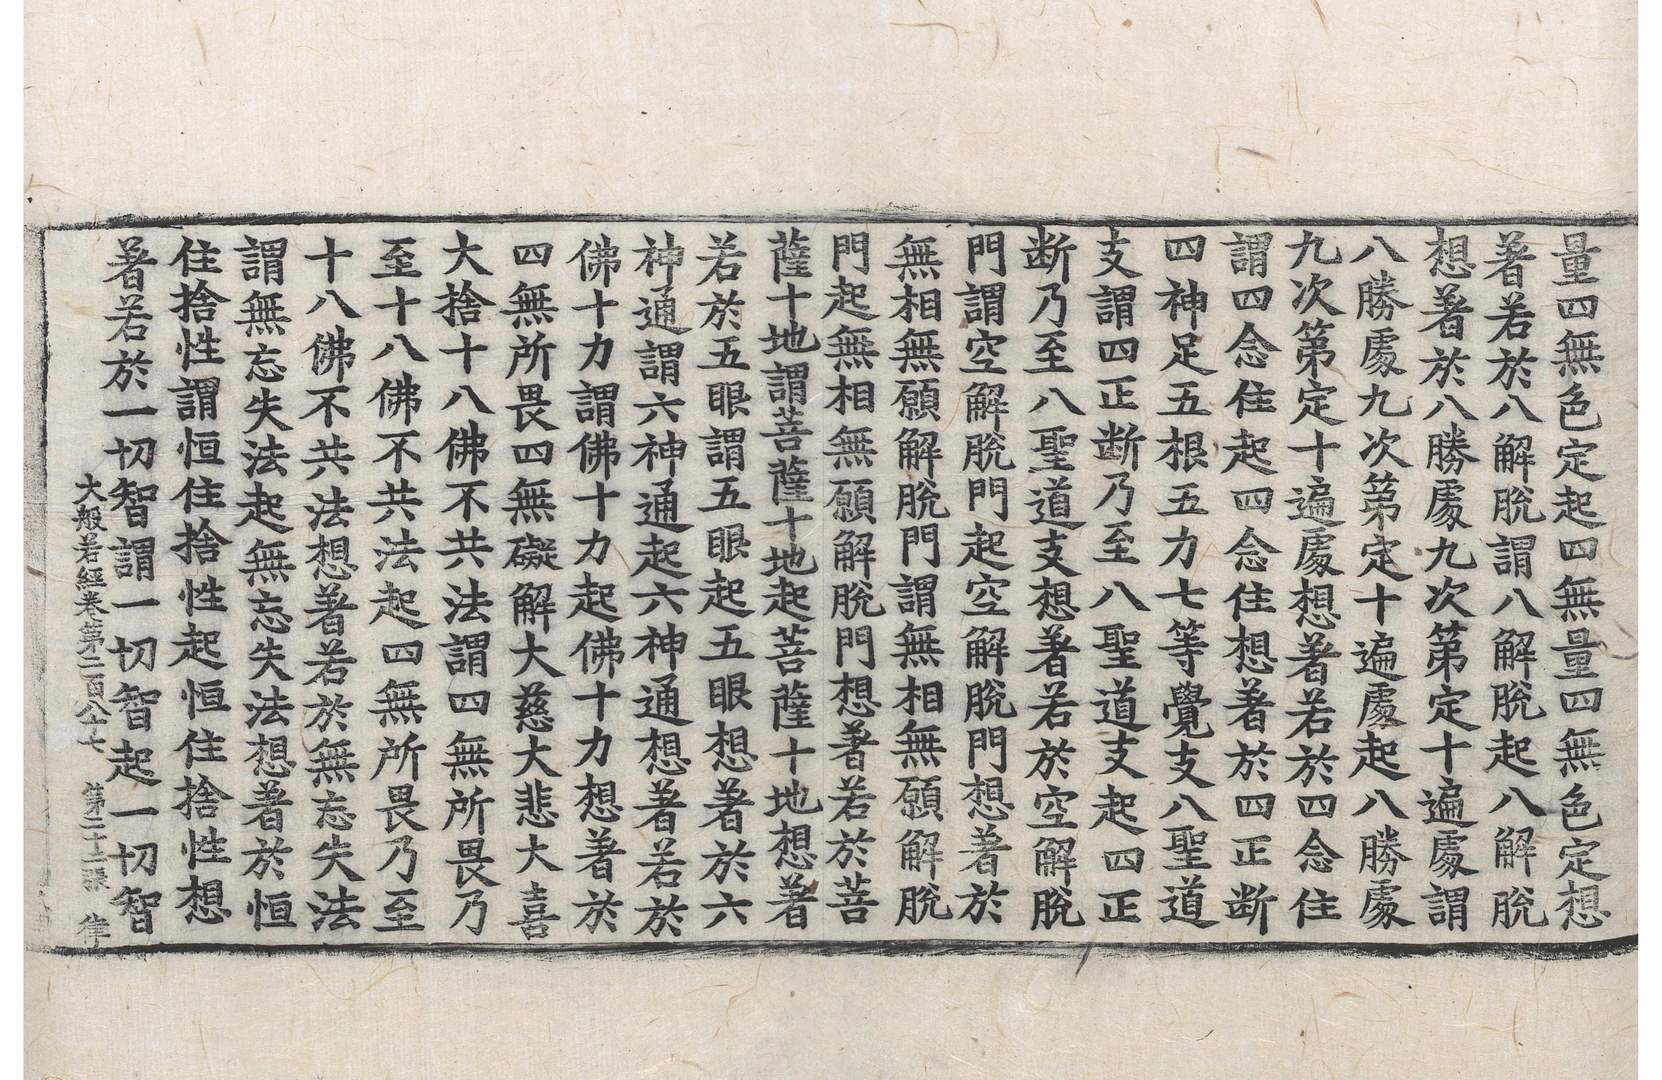 量四無色定起四無量四無色定想
著若於八解脫謂八解脫起八解脫
想著於八勝處九次第定十遍處謂
八勝處九次第定十遍處起八勝處
九次第定十遍處想著若於四念住
謂四念住起四念住想著於四正断
四神足五根五力七等覺支八聖道
支謂四正断乃至八聖道支起四正
断乃至八聖道支想著若於空解脫
門謂空解脫門起空解脫門想著於
無相無願解脫門謂無相無願解脫
門起無相無願解脫門想著若於菩
薩十地謂菩薩十地起菩薩十地想著
若於五眼謂五眼起五眼想著於六
神通謂六神通起六神通想著若於
佛十力謂佛十力起佛十力想著於
四無所畏四無礙解大慈大悲大喜
大捨十八佛不共法謂四無所畏乃
至十八佛不共法起四無所畏乃至
十八佛不共法想著若於無忘失法
謂無忘失法起無忘失法想著於恒
住捨性謂恒住捨性起恒住捨性想
著若於一切智謂一切智起一切智
大般若經卷第二百八十七 第二十二張 律